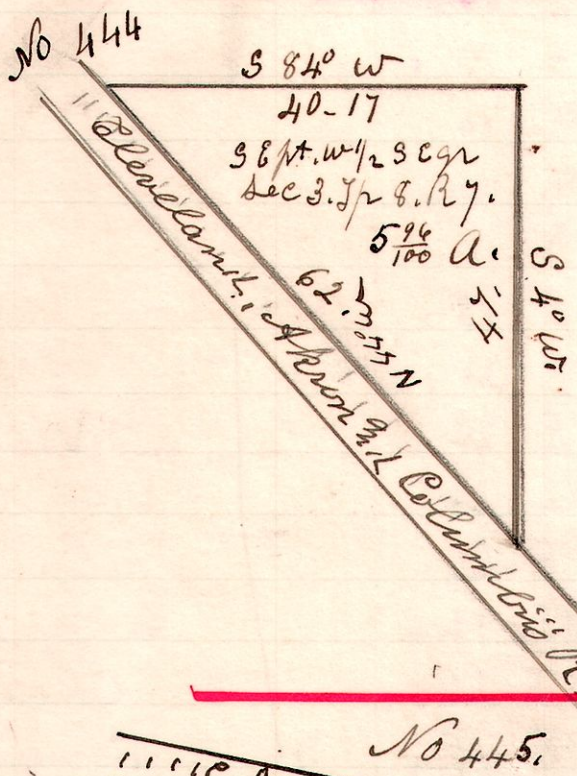 No 444
S 84° W
40-17
S E pt. W 1/2 S E qr
Sec 3. Tp 8. R 7.
5 96/100 A.
S 4° W.
54
N 44° W
62.
Cleveland, Akron & Columbus R
No 445.